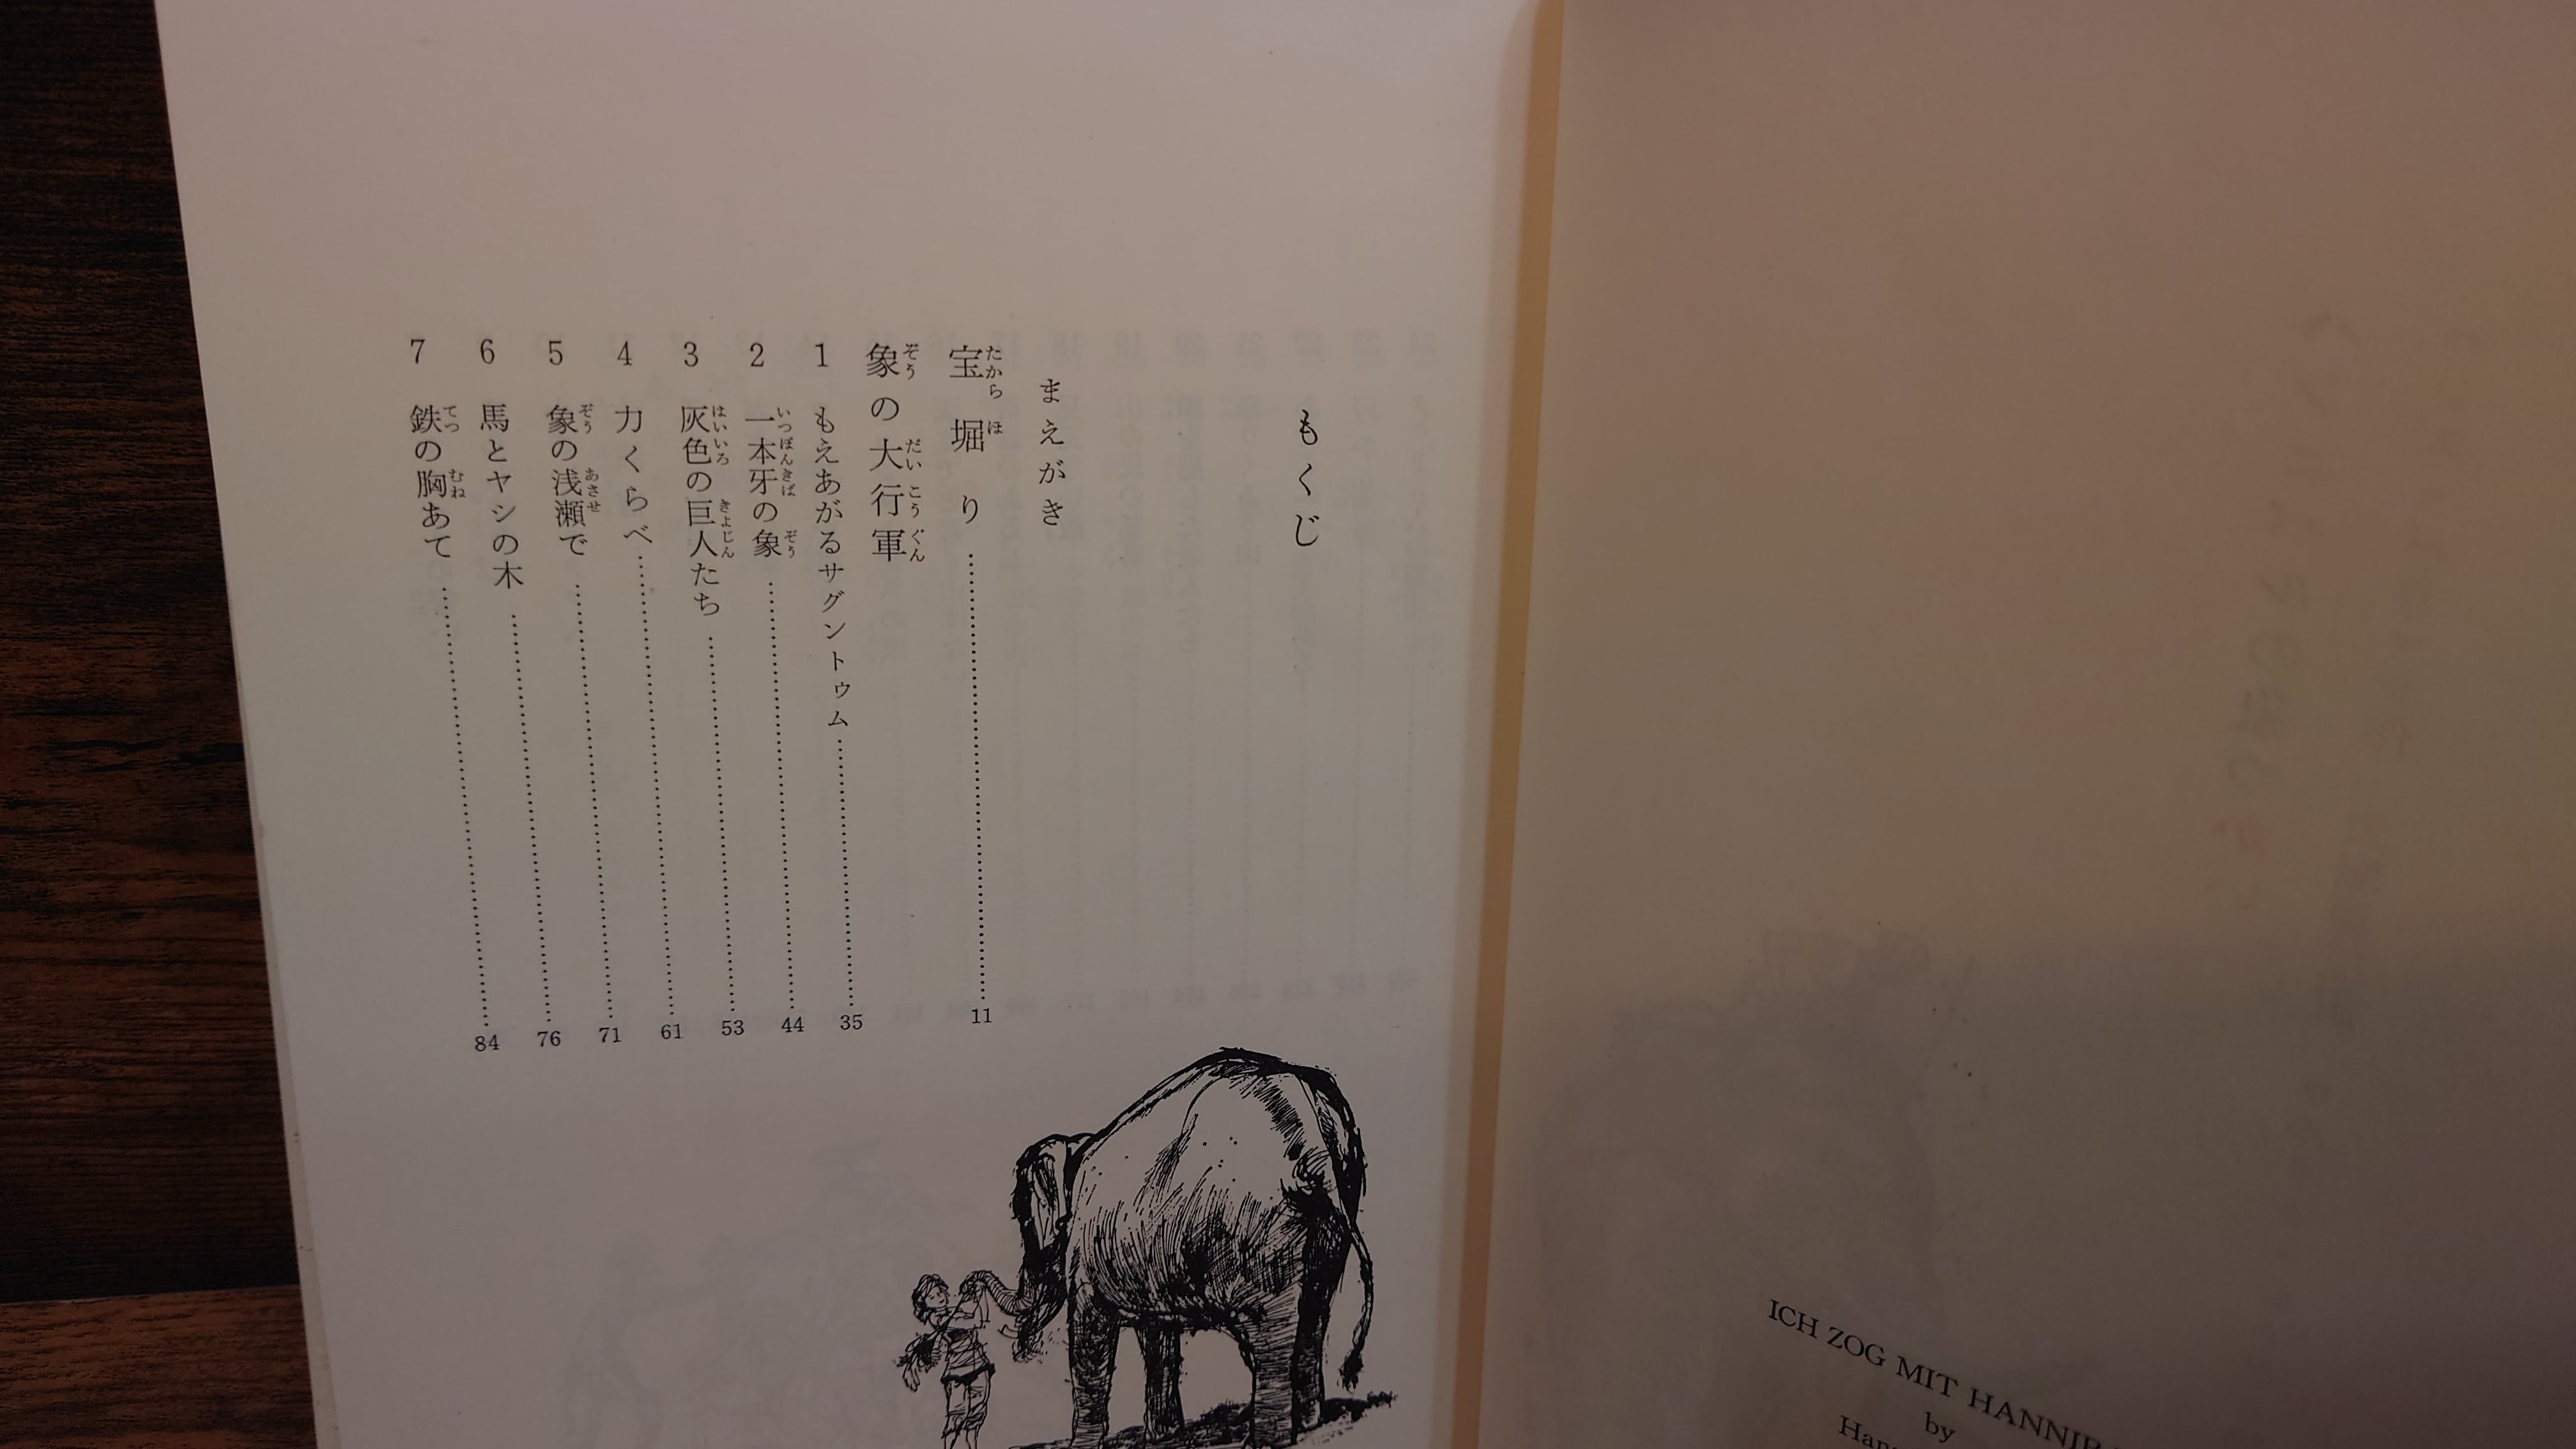 もくじ
まえがき
宝堀り 11
象の大行軍
1 もえあがるサグントゥム 35
2 一本牙の象 44
3 灰色の巨人たち 53
4 力くらべ 61
5 象の浅瀬で 71
6 馬とヤシの木 76
7 鉄の胸あて 84
ICH ZOG MIT
by